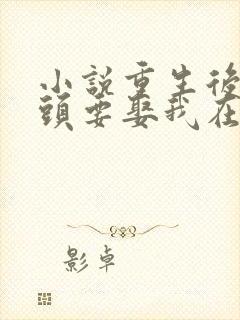 小說重生後
頭要娶我在
影卓